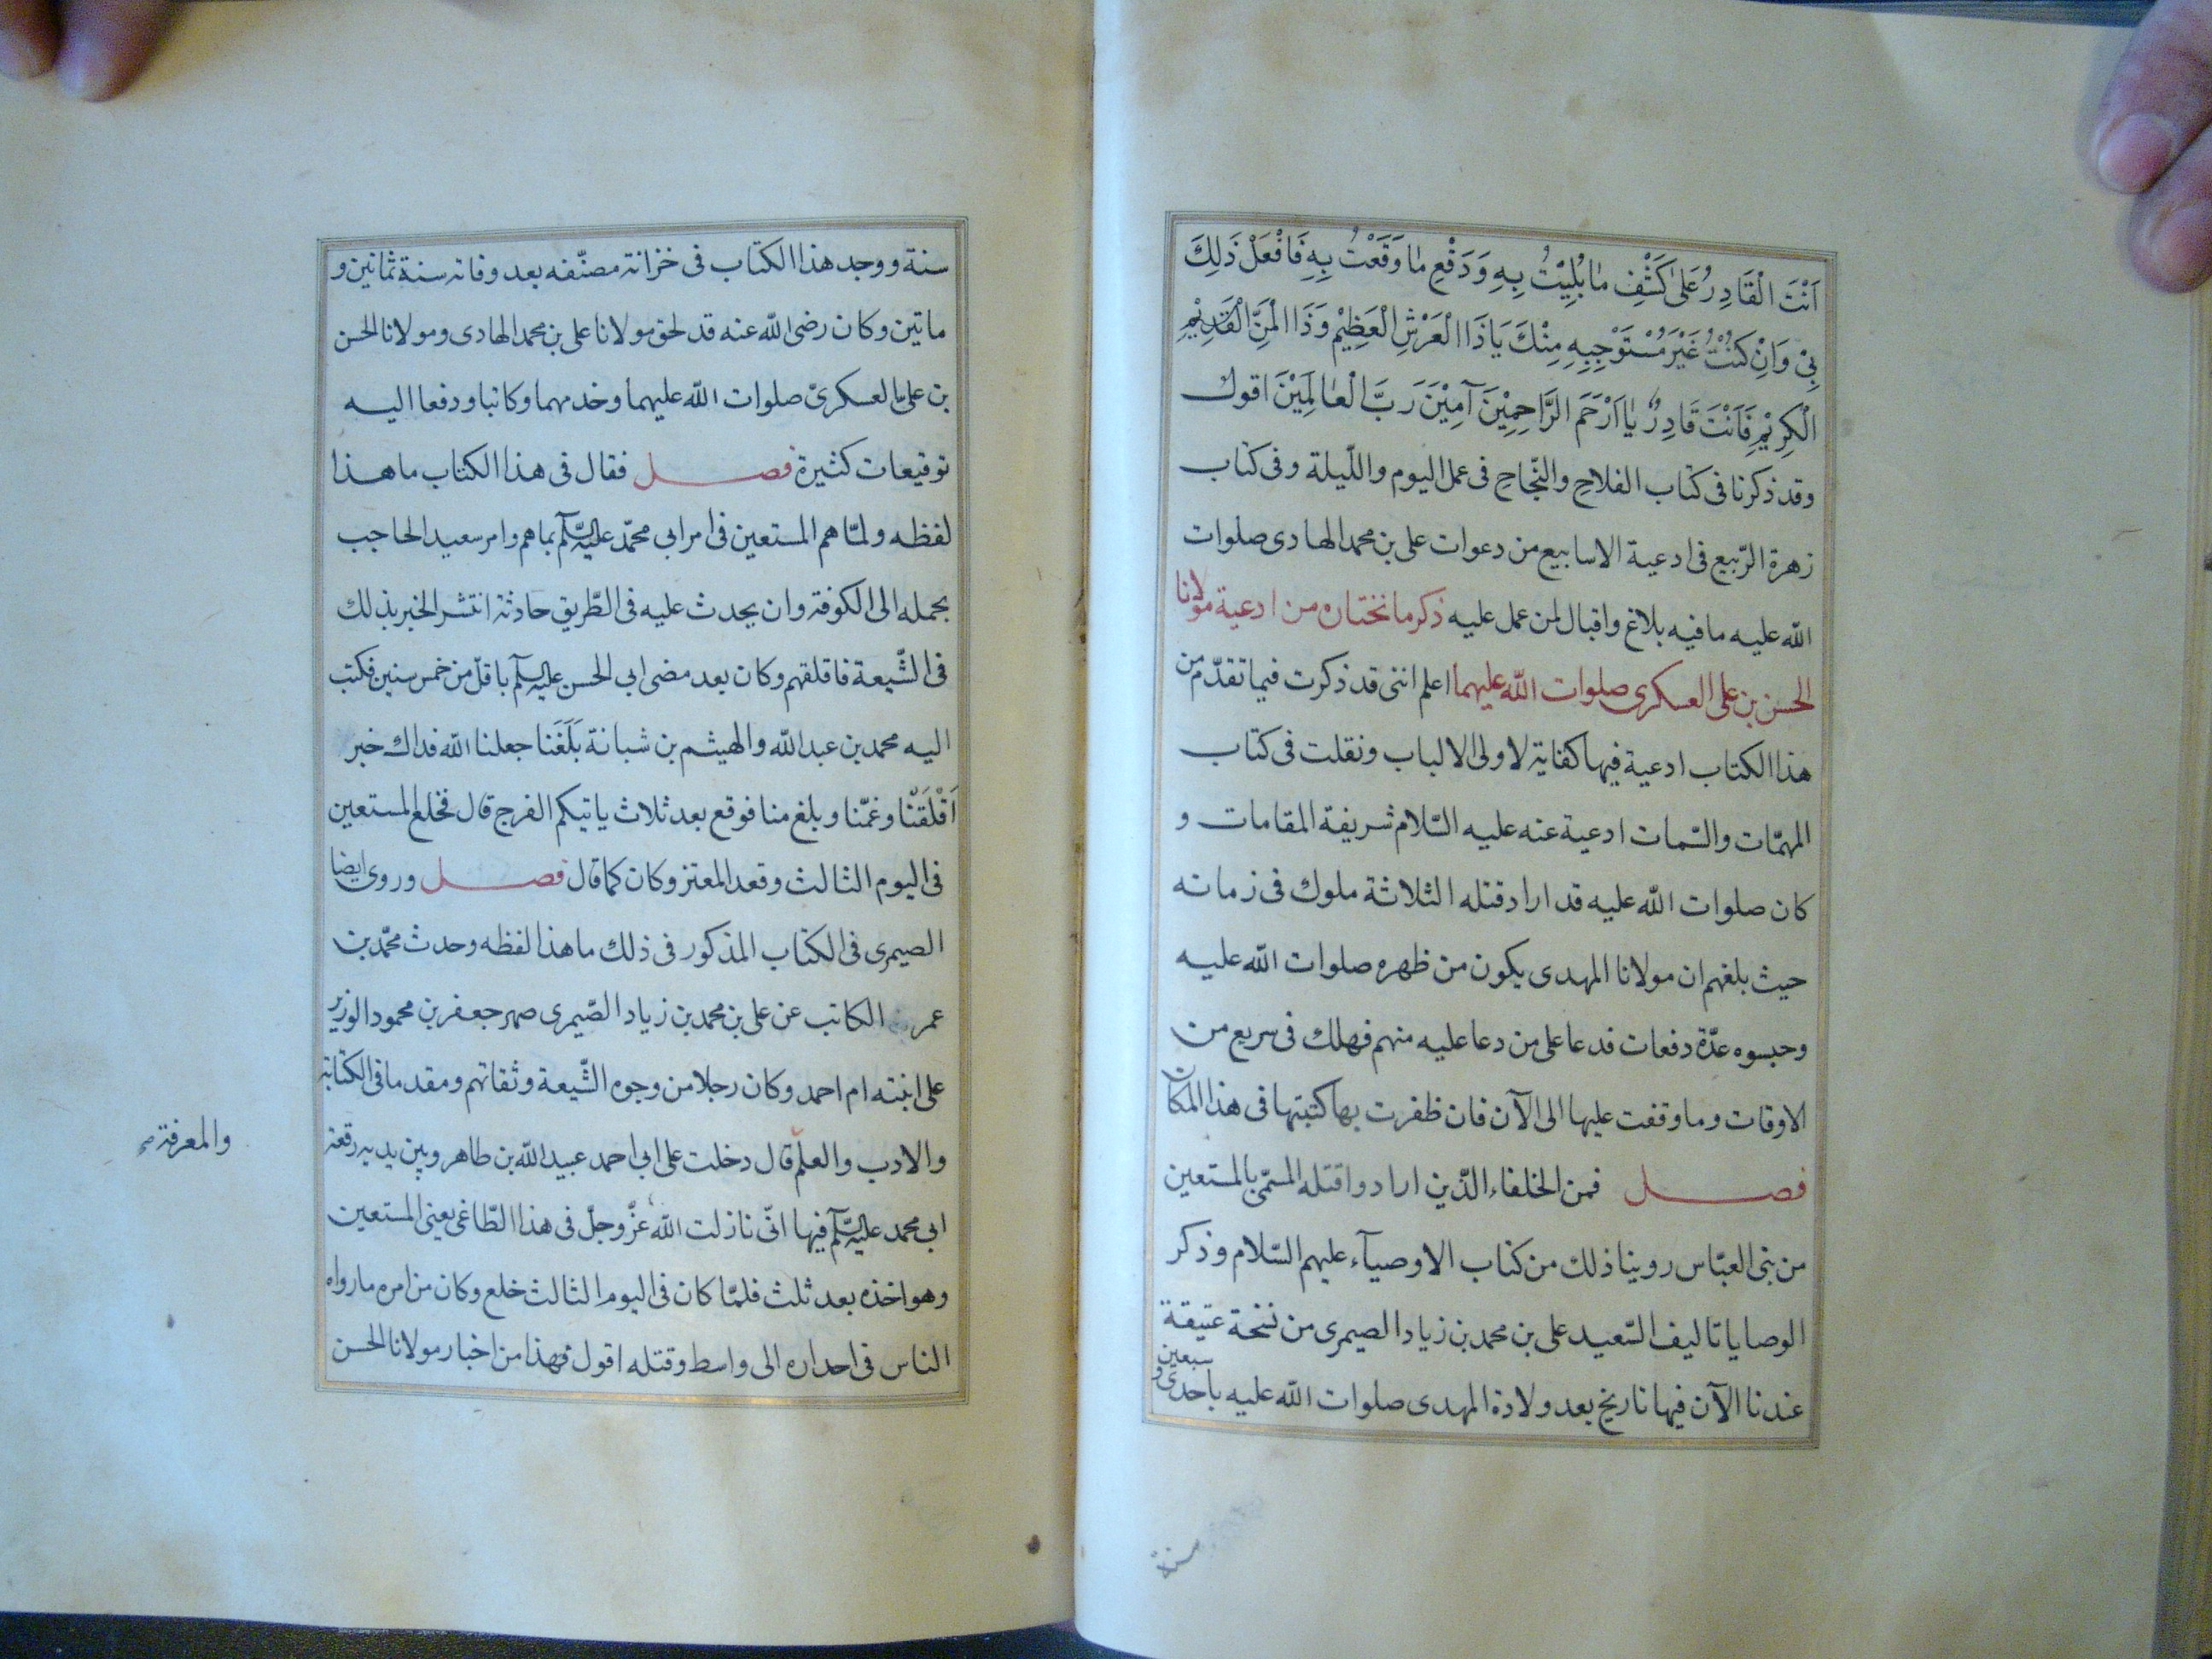 اَنْتَ الْقَادِرُ عَلىٰ كَشْفِ مٰا بُلِيْتُ بِهِ وَدَفْعِ مٰا وَقَعْتُ بِهِ فَافْعَلْ ذَلِكَ
بِىْ وَاِنْ كُنْتُ غَيْرَ مُسْتَوْجِبِهِ مِنْكَ يَاذَا الْعَرْشِ الْعَظِيْمِ وَذَا الْمَنِّ الْقَدِيْمِ
الْكَرِيْمِ فَاَنْتَ قَادِرٌ يٰا اَرْحَمَ الرَّاحِمِيْنَ آمِيْنَ رَبَّ الْعٰالَمِيْنَ اقول
وقد ذكرنا فى كتاب الفلاح والنّجاح فى عمل اليوم واللّيلة وفى كتاب
زهرة الرّبيع فى ادعية الاسابيع من دعوات على بن محمد الهادى صلوات
الله عليه ما فيه بلاغ واقبال لمن عمل عليه ذكر ما نختاره من ادعية مولانا
الحسن بن على العسكرى صلوات الله عليهما اعلم اننى قد ذكرت فيما تقدّم من
هذا الكتاب ادعية فيها كفاية لاولى الالباب ونقلت فى كتاب
المهمّات والتتمات ادعية عنه عليه السّلام شريفة المقامات و
كان صلوات الله عليه قد اراد قتله الثلاثة ملوك فى زمانه
حيث بلغهم ان مولانا المهدى يكون من ظهره صلوات الله عليه
وحبسوه عدّة دفعات فدعا على من دعا عليه منهم فهلك فى سريع من
الاوقات وما وقفت عليها الى الآن فان ظفرت بها كتبتها فى هذا المكان
فصل فمن الخلفاء الذّين ارادوا قتله المسمّى بالمستعين
من بنى العبّاس روينا ذلك من كتاب الاوصيآء عليهم السّلام وذكر
الوصايا تاليف السّعيد على بن محمد بن زياد الصيمرى من نسخة عتيقة
عندنا الآن فيها تاريخ بعد ولادة المهدى صلوات الله عليه باحدى و سبعين
سنة
سنة ووجد هذا الكتاب فى خزانة مصنّفه بعد وفاته سنة ثمانين و
ماتين وكان رضى الله عنه قد لحق مولانا على بن محمد الهادى ومولانا الحسن
بن على العسكرىّ صلوات الله عليهما وخدمهما وكاتبا ودفعا اليه
توقيعات كثيرة فصل فقال فى هذا الكتاب ما هذا
لفظه ولمّا هم المستعين فى امر ابى محمّد عليه السّلم بماهم وامر سعيد الحاجب
بحمله الى الكوفة وان يحدث عليه فى الطّريق حادثة انتشر الخبر بذلك
فى الشّيعة فاقلقهم وكان بعد مضى ابى الحسن عليه السّلم باقلّ من خمس سنين فكتب
اليه محمد بن عبد الله والهيثم بن شبانة بَلَغَنا جعلنا الله فداك خبر
اَقْلَقَنْا وغمّنا وبلغ منا فوقع بعد ثلاث ياتيكم الفرج قال فخلع المستعين
فى اليوم الثالث وقعد المعتز وكان كما قال فصل وروى ايضا
الصيمرى فى الكتاب المذكور فى ذلك ما هذا لفظه وحدث محمّد بن
عمر الكاتب عن على بن محمد بن زياد الصّيمرى صهر جعفر بن محمود الوزير
على ابنته ام احمد وكان رجلا من وجوه الشّيعة وثقاتهم ومقدما فى الكتابة
والادب والعلم قال دخلت على ابى احمد عبيد الله بن طاهر وبين يديه رقعة
والمعرفة صح
ابى محمد عليه السّلم فيها انّى نازلت الله عزّ وجلّ فى هذا الطّاغى يعنى المستعين
وهو اخذه بعد ثلث فلمّا كان فى اليوم الثالث خلع وكان من امره ما رواه
الناس فى احداره الى واسط وقتله اقول فهذا من اخبار مولانا الحسن